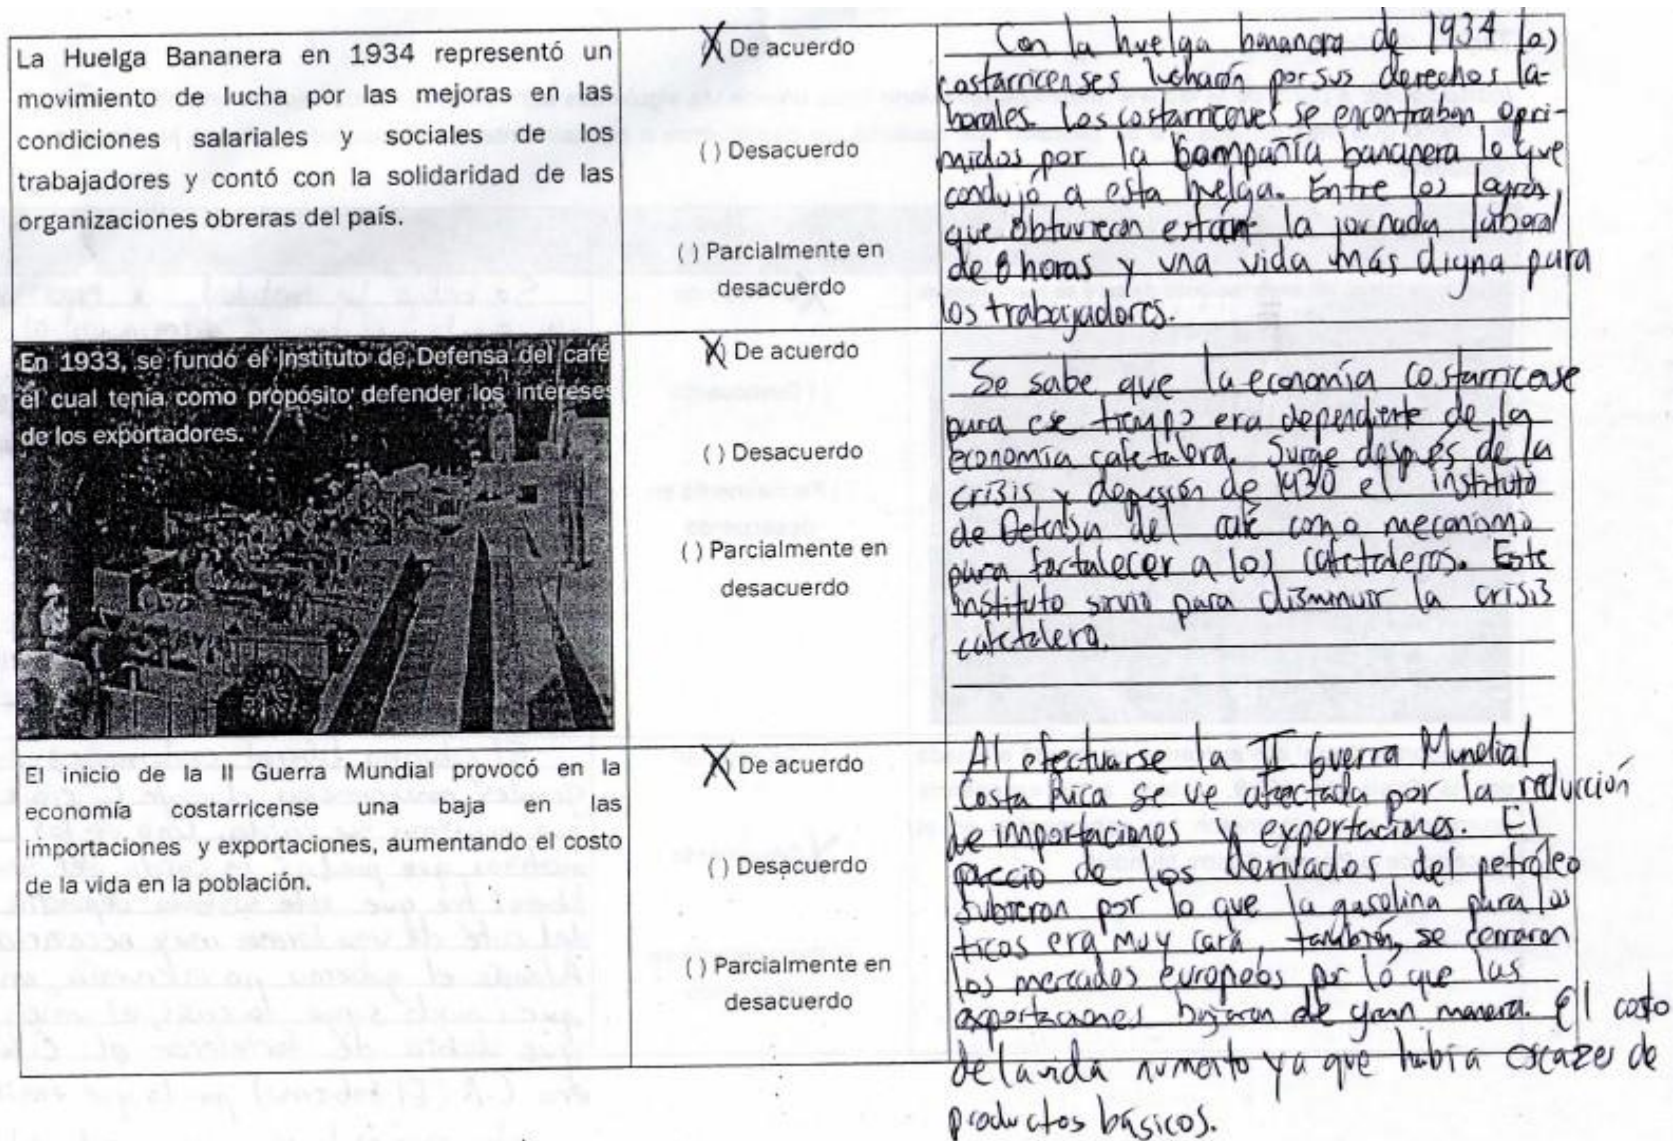 La Huelga Bananera en 1934 representó un
movimiento de lucha por las mejoras en las
condiciones salariales y sociales de los
trabajadores y contó con la solidaridad de las
organizaciones obreras del país.
X De acuerdo
( ) Desacuerdo
( ) Parcialmente en
desacuerdo
Con la huelga bananera de 1934 los
costarricenses lucharon por sus derechos la-
borales. Los costarricenses se encontraban opri-
midos por la compañía bananera lo que
condujó a esta huelga. Entre los logros
que obtuvieron están la jornada laboral
de 8 horas y una vida más digna para
los trabajadores.
En 1933, se fundó el Instituto de Defensa del café
el cual tenía como propósito defender los intereses
de los exportadores.
X De acuerdo
( ) Desacuerdo
( ) Parcialmente en
desacuerdo
Se sabe que la economía costarricense
para ese tiempo era dependiente de la
economía cafetalera. Surge después de la
crisis y depresión de 1930 el instituto
de Defensa del café como mecanismo
para fortalecer a los cafetaleros. Este
instituto sirvio para disminuir la crisis
cafetalera.
El inicio de la II Guerra Mundial provocó en la
economía costarricense una baja en las
importaciones y exportaciones, aumentando el costo
de la vida en la población.
X De acuerdo
( ) Desacuerdo
( ) Parcialmente en
desacuerdo
Al efectuarse la II Guerra Mundial
Costa Rica se ve afectada por la reducción
de importaciones y exportaciones. El
precio de los derivados del petróleo
subieron por lo que la gasolina para los
ticos era muy cara, también, se cerraron
los mercados europeos por lo que las
exportaciones bajaron de gran manera. El costo
de la vida aumento ya que había escazes de
productos básicos.